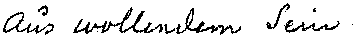 Aus wollendem Sein